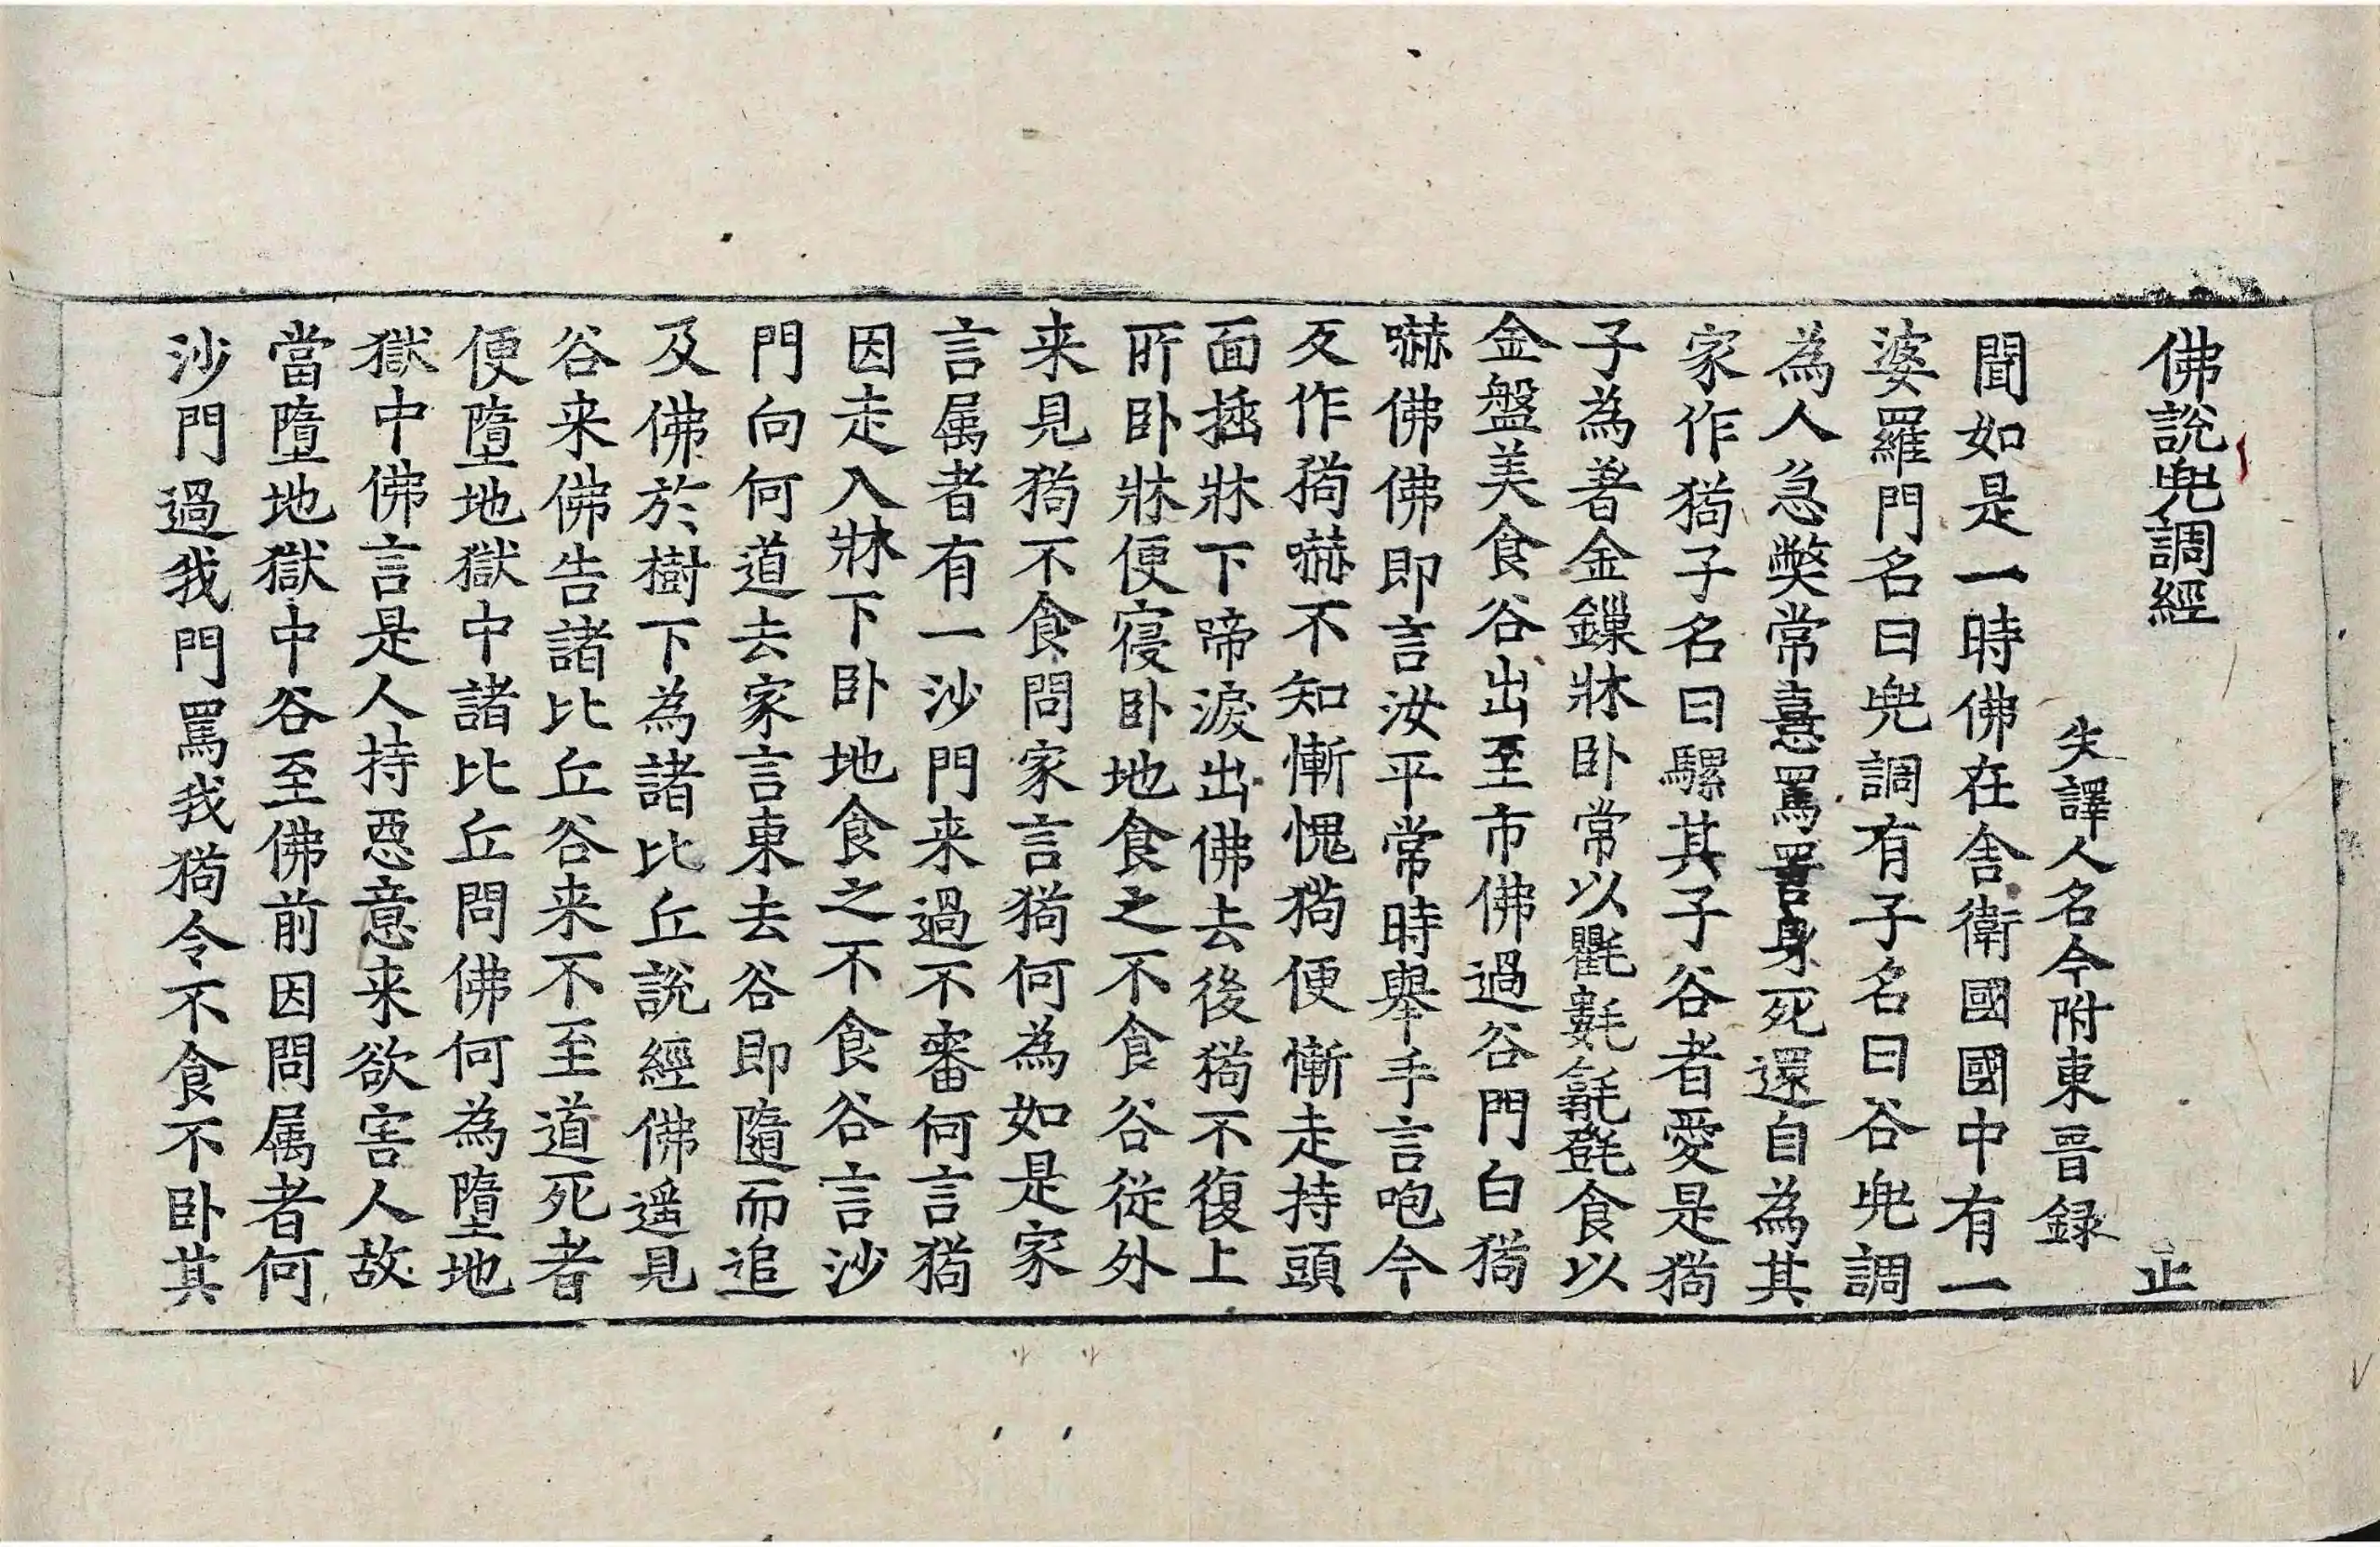 佛說兜調經 止
失譯人名今附東晉録
聞如是一時佛在舎衛國國中有一
婆羅門名曰兜調有子名曰谷兜調
為人急弊常憙罵詈身死還自為其
家作猗子名曰騾其子谷者愛是猗
子為著金鏁牀卧常以氍𣰽㲪㲪食以
金盤美食谷出至市佛過谷門白猗
嚇佛佛即言汝平常時舉手言咆今
反作猗嚇不知慚愧猗便慚走持頭
面插牀下啼淚出佛去後猗不復上
所卧牀便寑卧地食之不食谷從外
来見猗不食問家言猗何為如是家
言属者有一沙門来過不審何言猗
因走入牀下卧地食之不食谷言沙
門向何道去家言東去谷即隨而追
及佛於樹下為諸比丘說經佛遥見
谷来佛告諸比丘谷来不至道死者
便墮地獄中諸比丘問佛何為墮地
獄中佛言是人持惡意来欲害人故
當墮地獄中谷至佛前因問属者何
沙門過我門罵我猗令不食不卧其